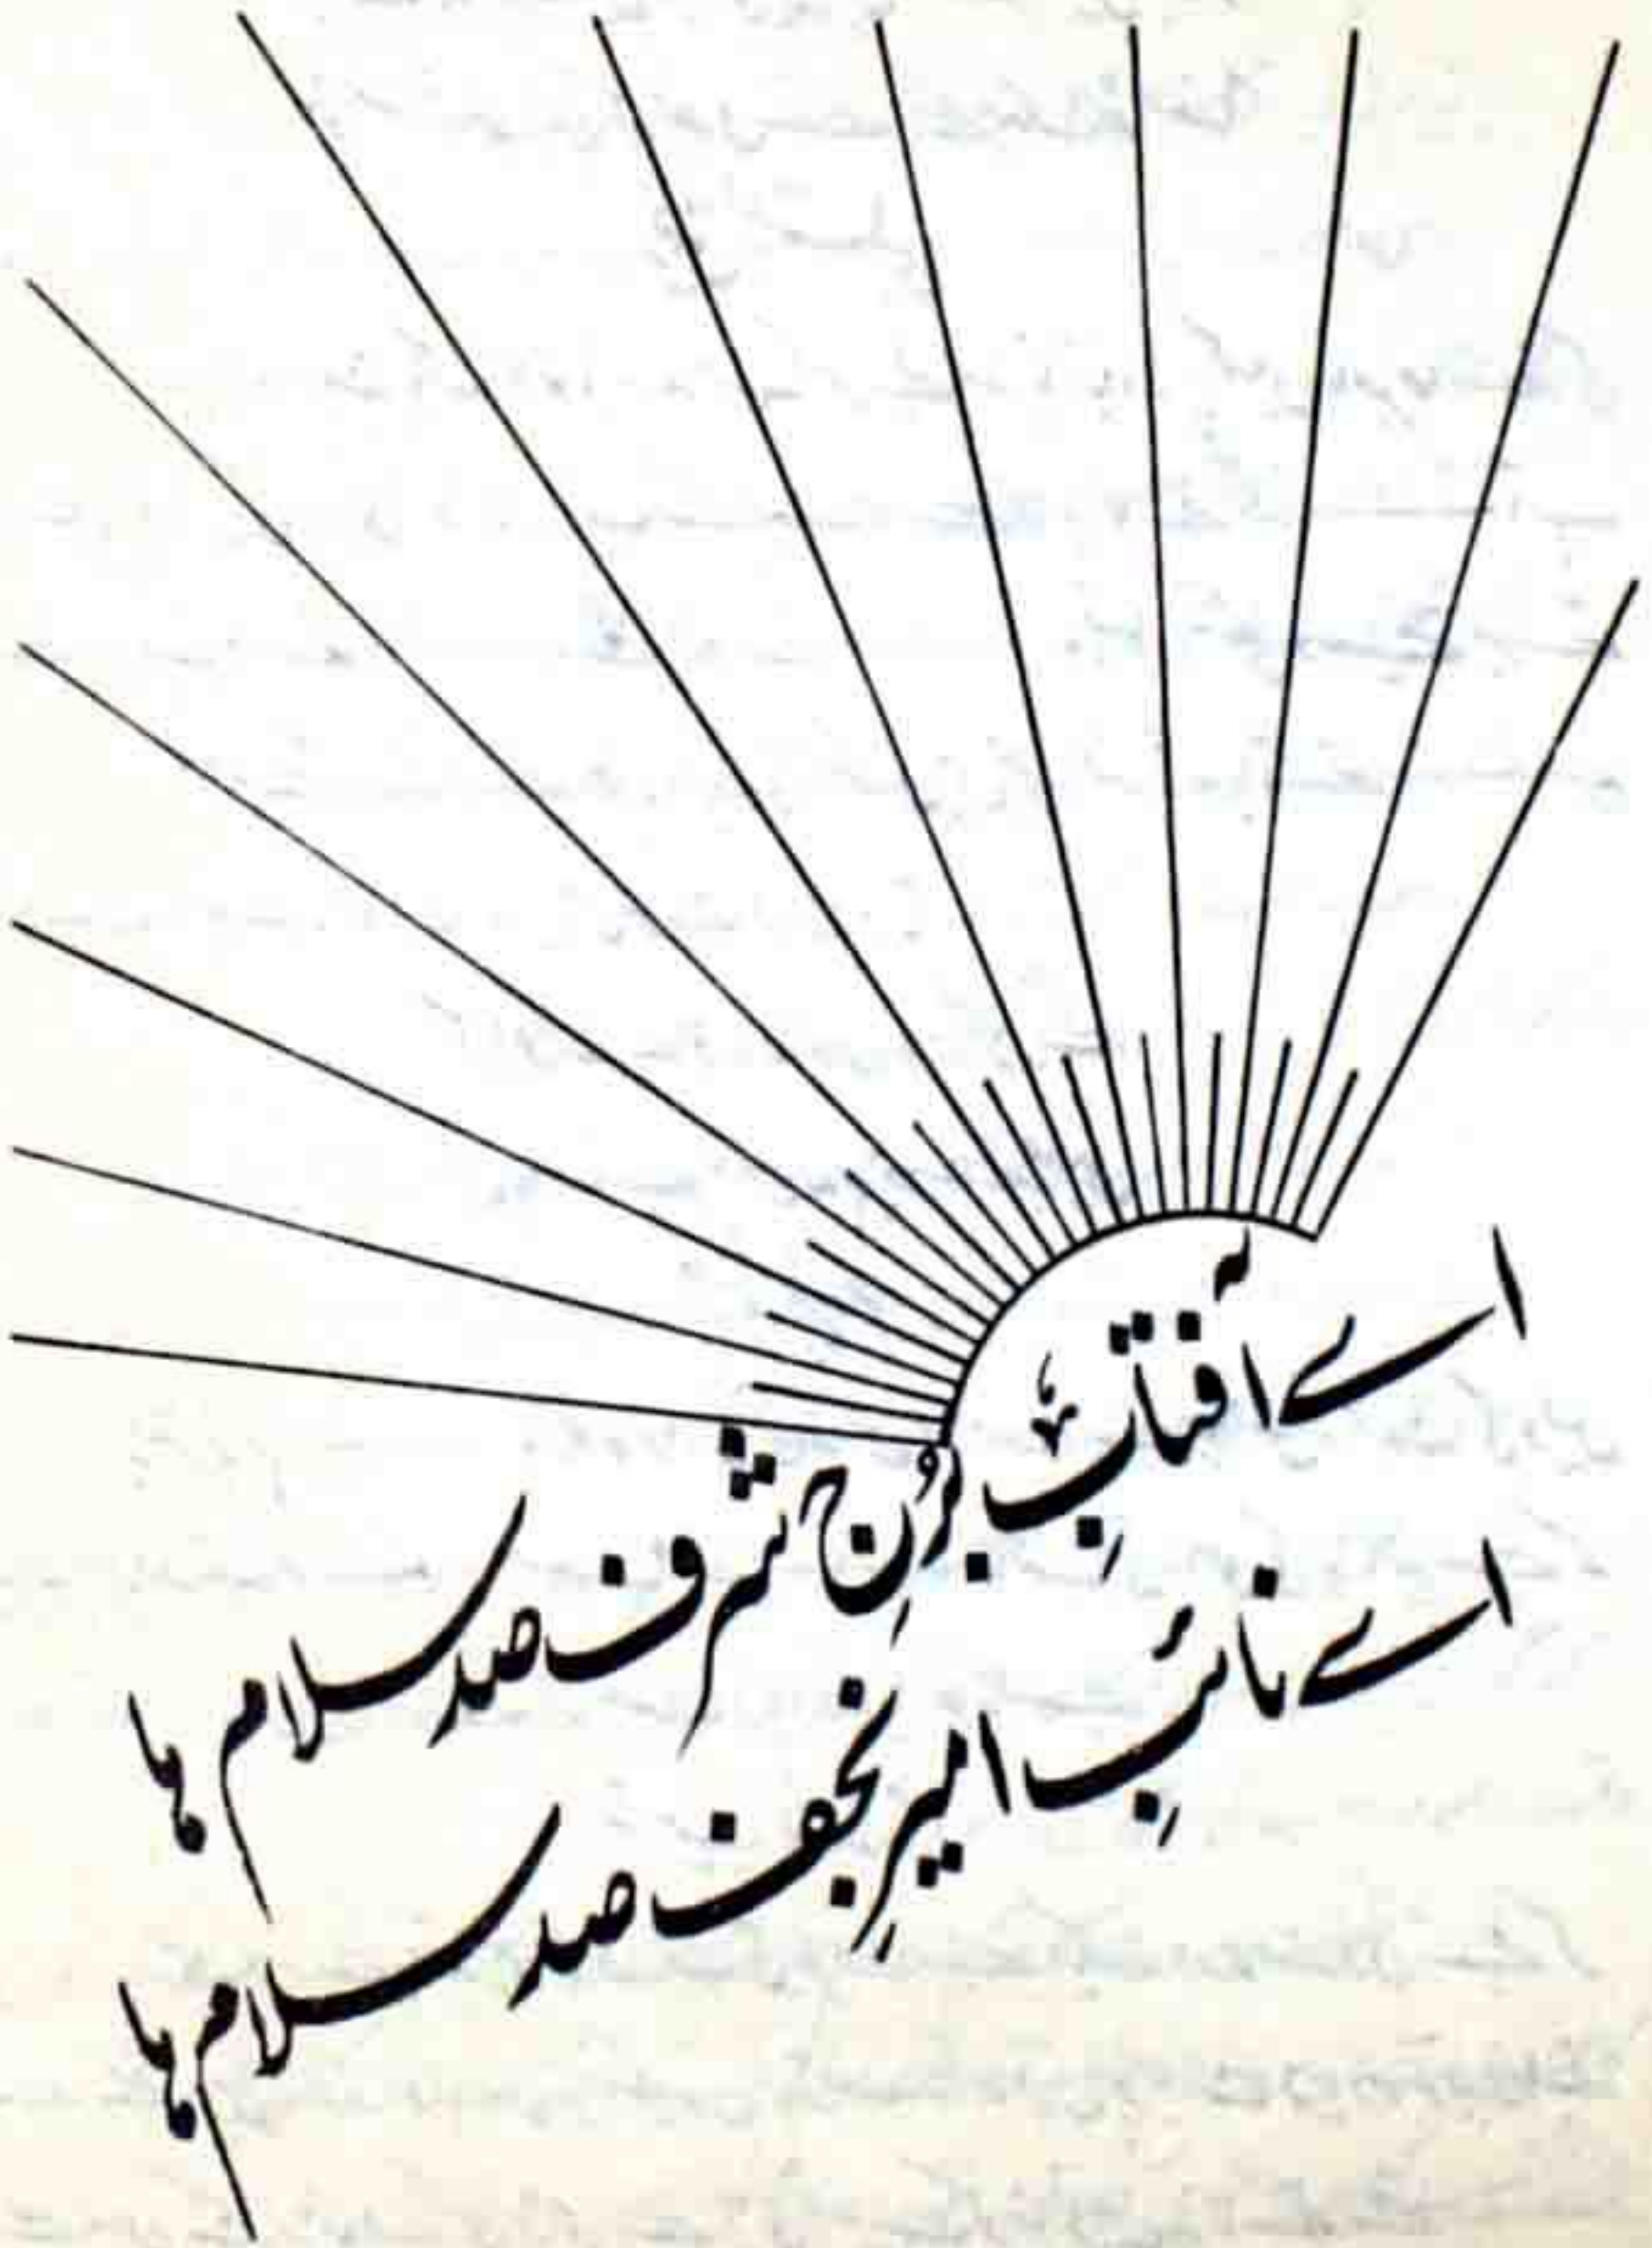 اے آفتابِ بُرجِ شرف صد سلام ہا
اے نائبِ امیرِ نجف صد سلام ہا